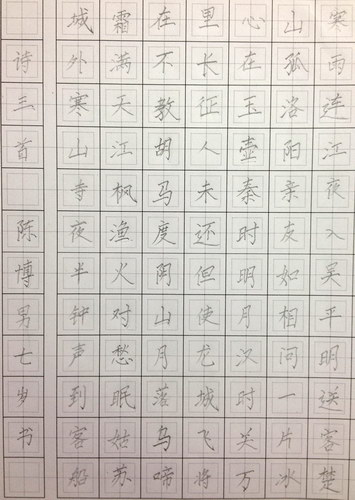 寒雨连江夜入吴平明送客楚
山孤洛阳亲友如相问一片冰
心在玉壶秦时明月汉时关万
里长征人未还但使龙城飞将
在不教胡马度阴山月落乌啼
霜满天江枫渔火对愁眠姑苏
城外寒山寺夜半钟声到客船
诗三首 陈博男七岁书